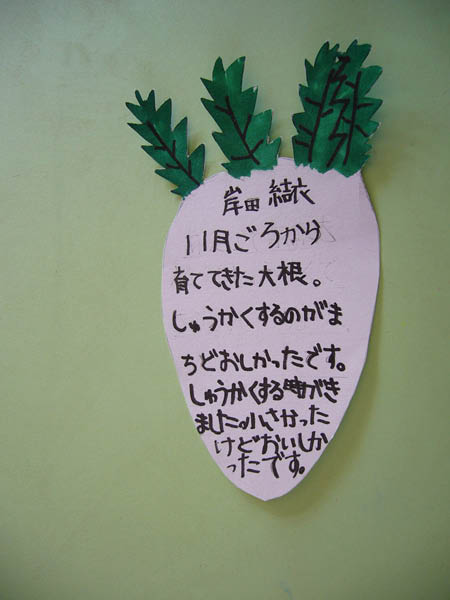 岸田 結衣
11月ごろから
育ててきた大根。
しゅうかくするのがま
ちどおしかったです。
しゅうかくする時がき
ました。小さかった
けどおいしか
ったです。